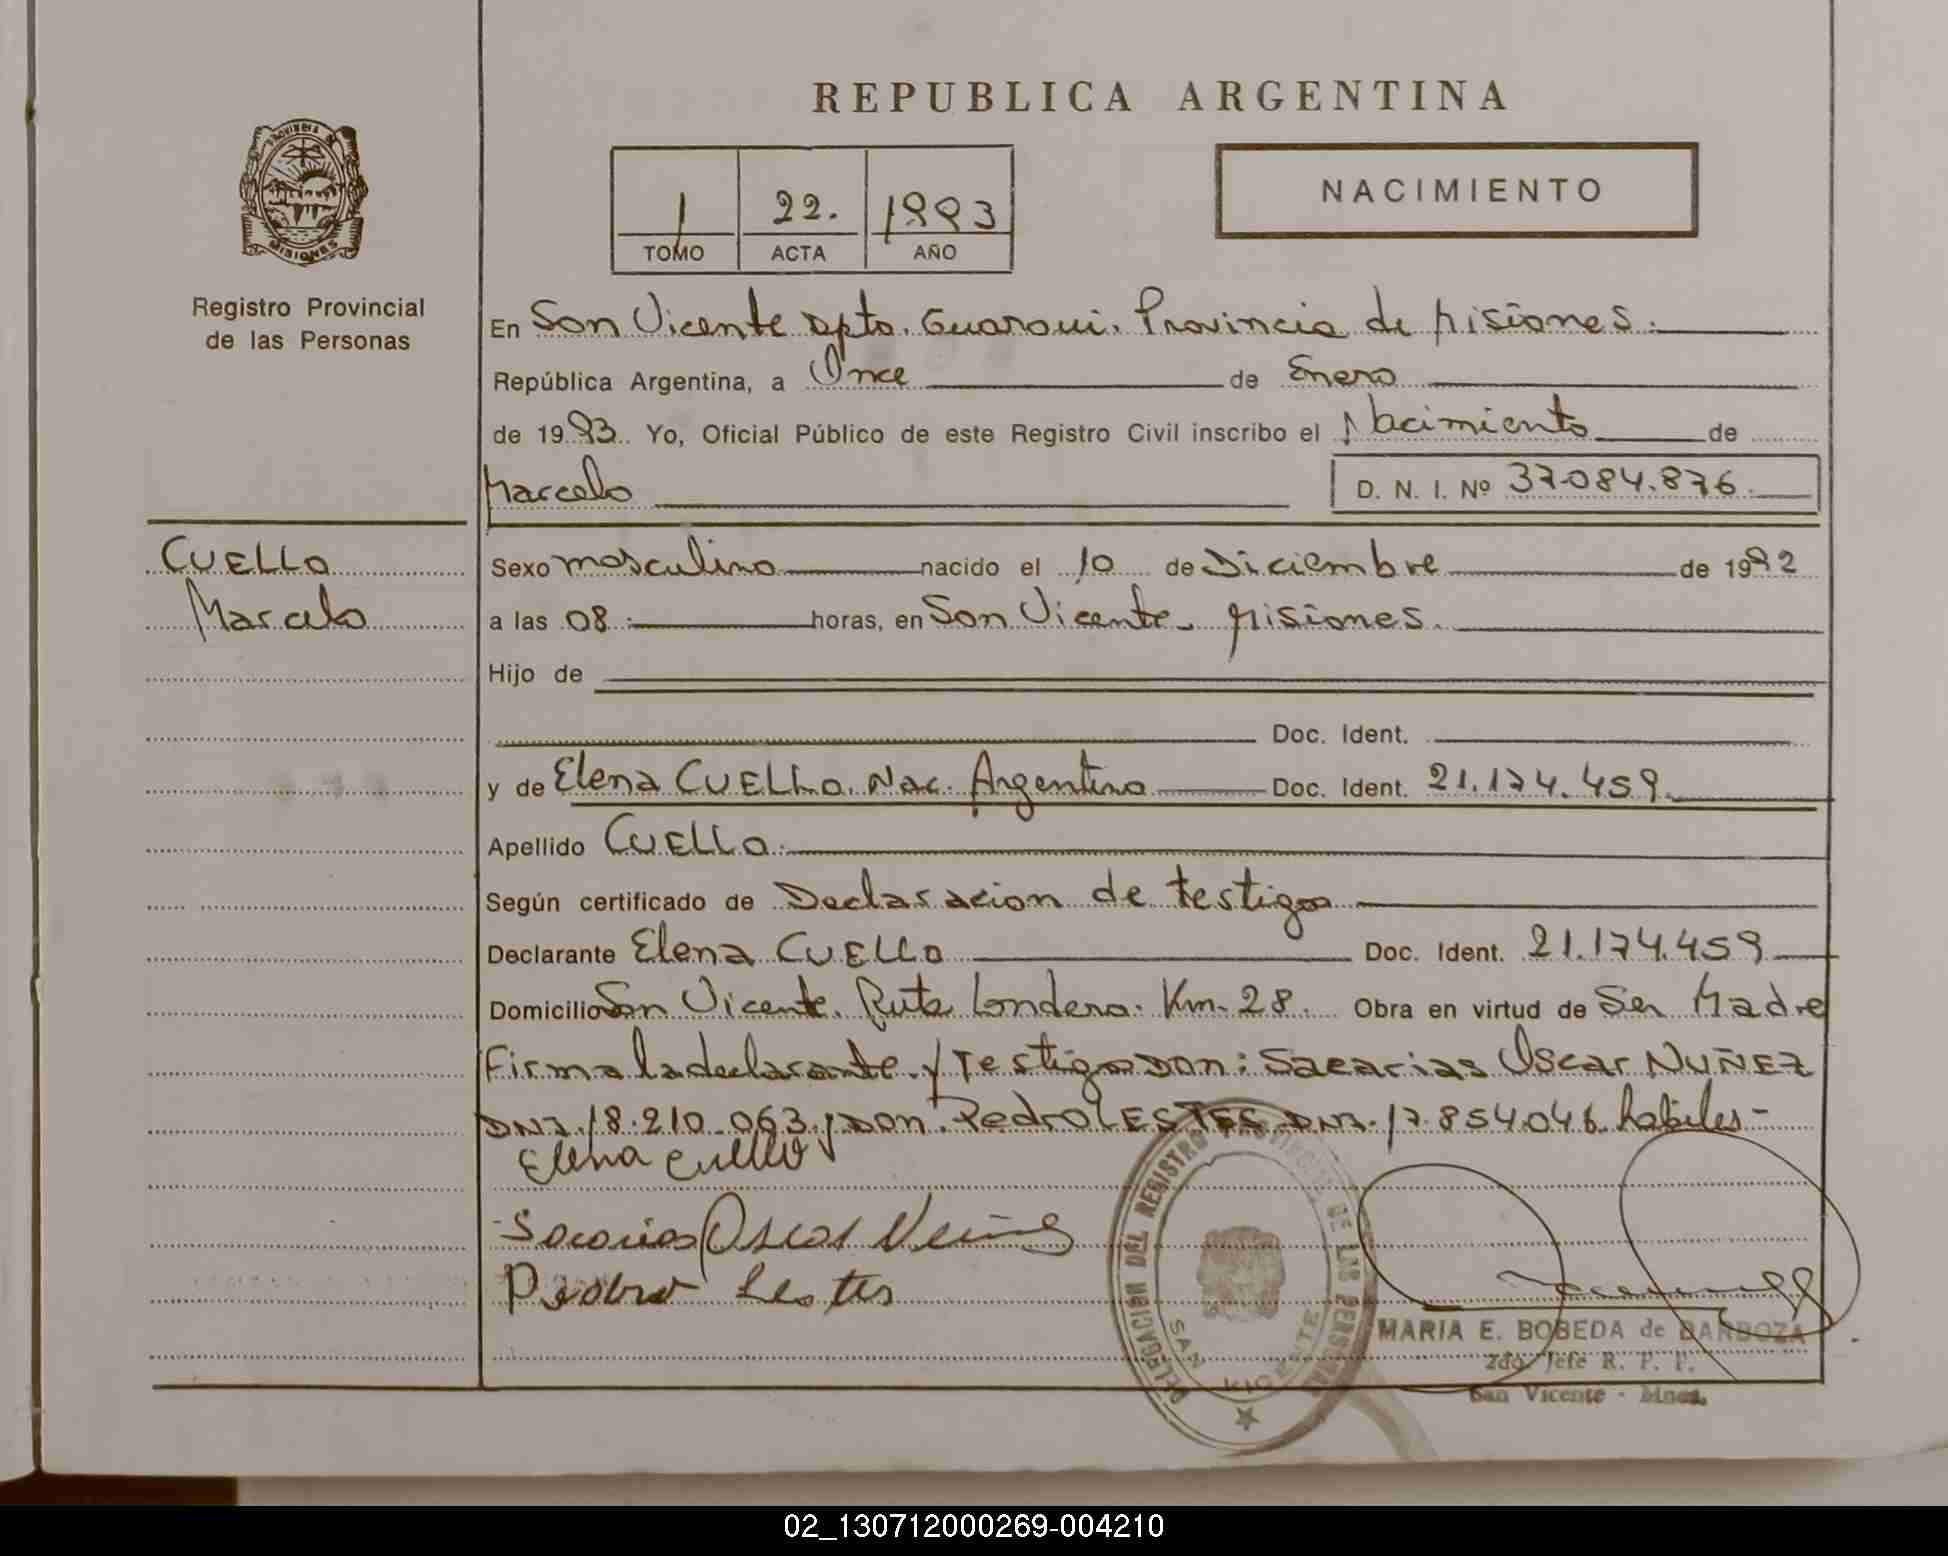 REPUBLICA ARGENTINA
PROVINCIA DE
MISIONES
Registro Provincial
de las Personas
1 22. 1993
TOMO ACTA AÑO
NACIMIENTO
En San Vicente Dpto. Guarani. Provincia de Misiones.
República Argentina, a Once de Enero
de 1993. Yo, Oficial Público de este Registro Civil inscribo el Nacimiento de
Marcelo D. N. I. Nº 37.084.876.
CUELLO
Marcelo
Sexo masculino nacido el 10 de Diciembre de 1992
a las 08 horas, en San Vicente. Misiones.
Hijo de
Doc. Ident.
y de Elena CUELLO. Nac. Argentina Doc. Ident. 21.174.459.
Apellido CUELLO.
Según certificado de Declaracion de testigos
Declarante Elena CUELLO Doc. Ident. 21.174.459
Domicilio San Vicente. Ruta Londero. Km. 28. Obra en virtud de Ser Madre
Firma la declarante. y Testigos DON: Sacarias Oscar NUÑEZ
DNI. 18.210.063 y DON. Pedro LESTES DNI. 17.854.046. habiles-
Elena Cuello
Sacarias Oscar Nuñes
Pedro Lestes
DELEGACION DEL REGISTRO PROVINCIAL DE LAS PERSONAS
SAN VICENTE
MARIA E. BOBEDA de BARBOZA
2do. Jefe R. P. P.
San Vicente - Mnes.
02_130712000269-004210